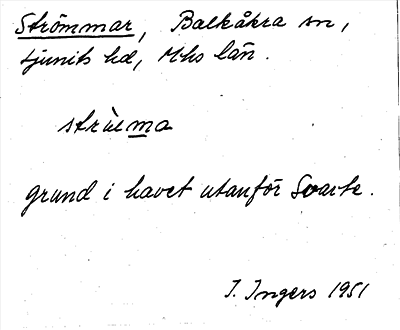 Strömmar, Balkåkra sn,
Ljunits hd, Mhs län.
grund i havet utanför Svarte.
I. Ingers 1951